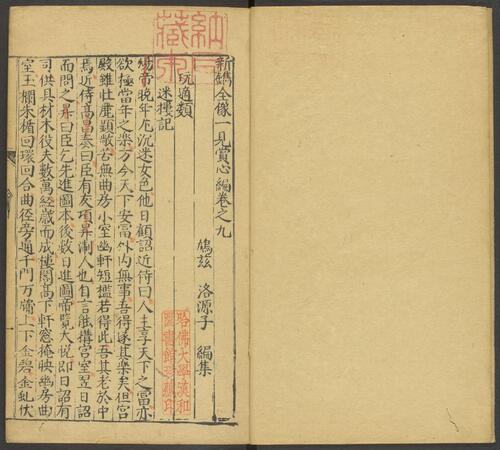 新鐫全像一見賞心編卷之九
鳩茲 洛源子 編集
玩適類
迷樓記
煬帝晚年尤沉迷女色他日顧詔近侍曰人主享天下之富亦
欲極當年之樂今天下安富外內無事吾得遂其樂矣但宮
殿雖壯麗顯敞苦無曲房小室幽軒短檻若得此吾其老於中
焉近侍高昌奏曰臣有友項昇浙人也自言能搆宮室翌日詔
而問之昇曰臣乞先進圖本後数日進圖帝覽大悅即日詔有
司供具材木役夫數萬經歲而成樓閣高下軒窓掩映幽房曲
室玉欄朱楯回環回合曲徑旁通千門万牖上下金碧金虬伏
哈佛大學漢和
圖書館珍藏印